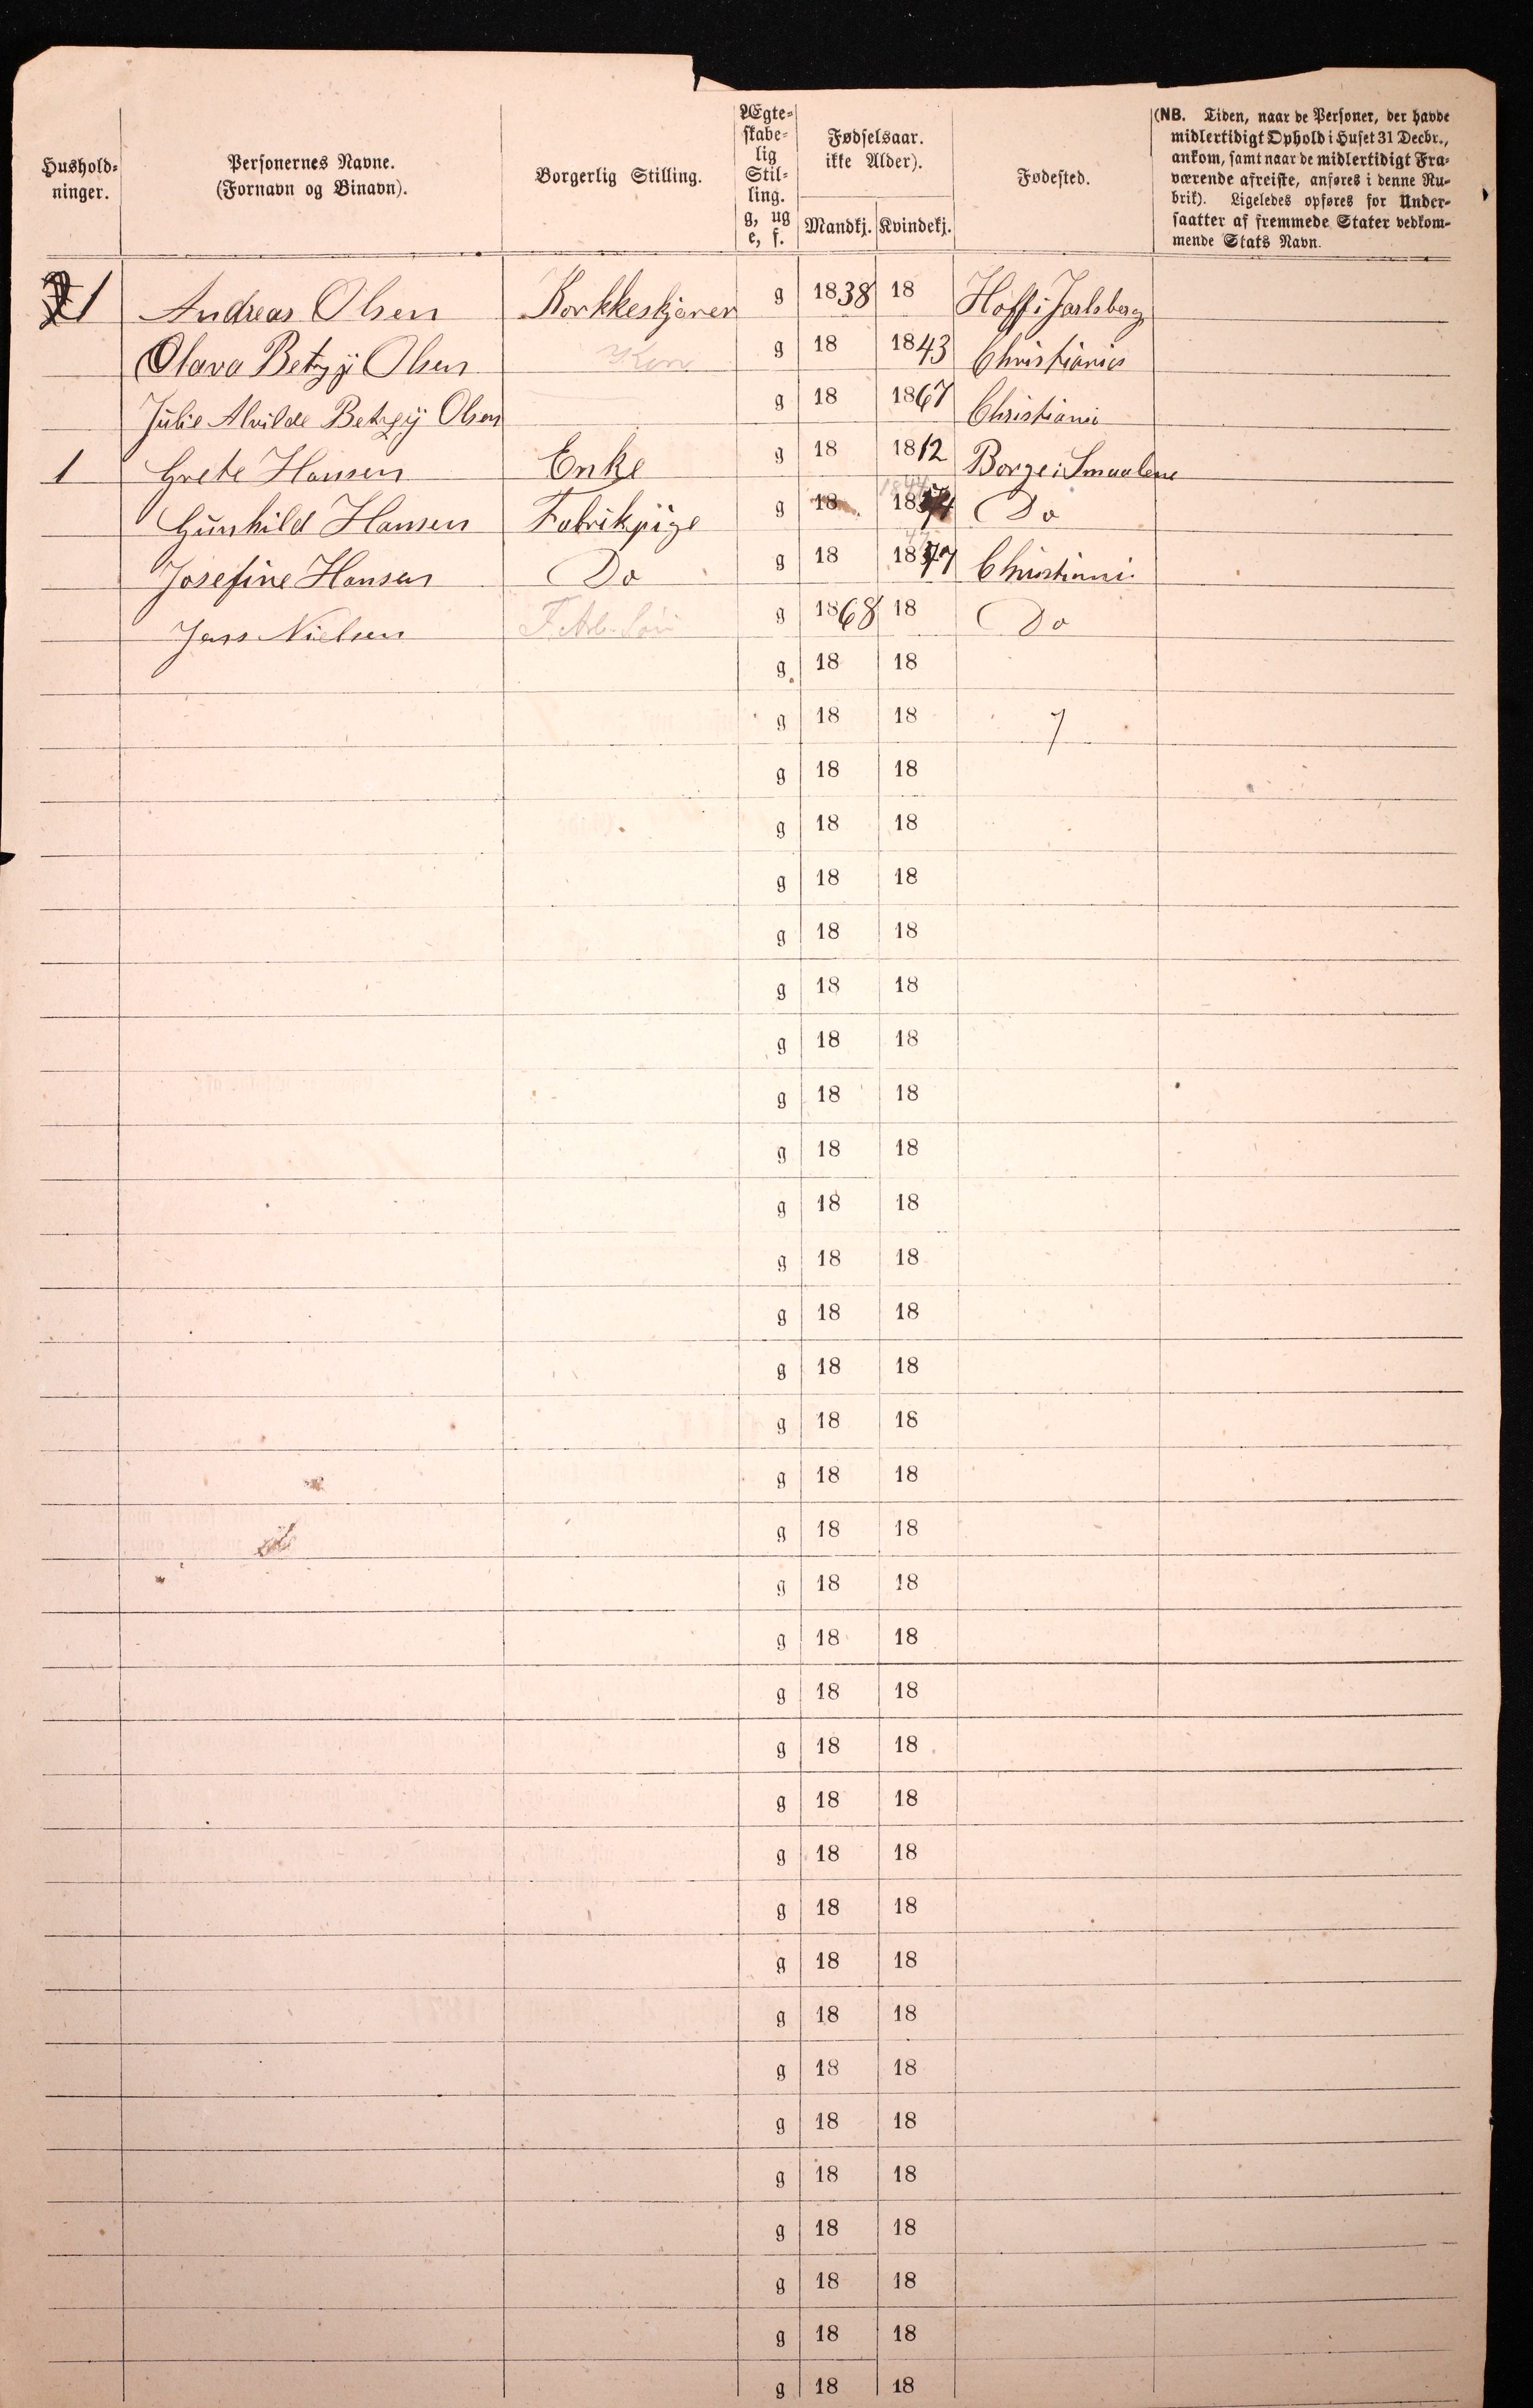 Hushold-
ninger.
Personernes Navne.
(Fornavn og Binavn).
Borgerlig Stilling.
Ægte-
skabe-
lig
Stil-
ling.
g, ug
e, f.
Fødselsaar.
ikke Alder).
Mandkj. Kvindekj.
Fødested.
(NB. Tiden, naar de Personer, der havde
midlertidigt Ophold i Huset 31 Decbr.,
ankom, samt naar de midlertidigt Fra-
værende afreiste, anføres i denne Ru-
brik). Ligeledes opføres for Under-
saatter af fremmede Stater vedkom-
mende Stats Navn.
1 Andreas Olsen Korkkeskjærer g 1838 18 Hoff i Jarlsberg
Olava Betzy Olsen Kone g 18 1843 Christiania
Julie Alvilde Betzy Olsen g 18 1867 Christiania
1 Grete Hansen Enke g 18 1812 Borge i Smaalene
Gunhild Hansen Fabrikpige g 18 18 Do
Josefine Hansen Do g 18 1847 Christiani
Jens Nielsen g 1868 18 Do
g 18 18
g 18 18 7
g 18 18
g 18 18
g 18 18
g 18 18
g 18 18
g 18 18
g 18 18
g 18 18
g 18 18
g 18 18
g 18 18
g 18 18
g 18 18
g 18 18
g 18 18
g 18 18
g 18 18
g 18 18
g 18 18
g 18 18
g 18 18
g 18 18
g 18 18
g 18 18
g 18 18
g 18 18
g 18 18
g 18 18
g 18 18
g 18 18
g 18 18